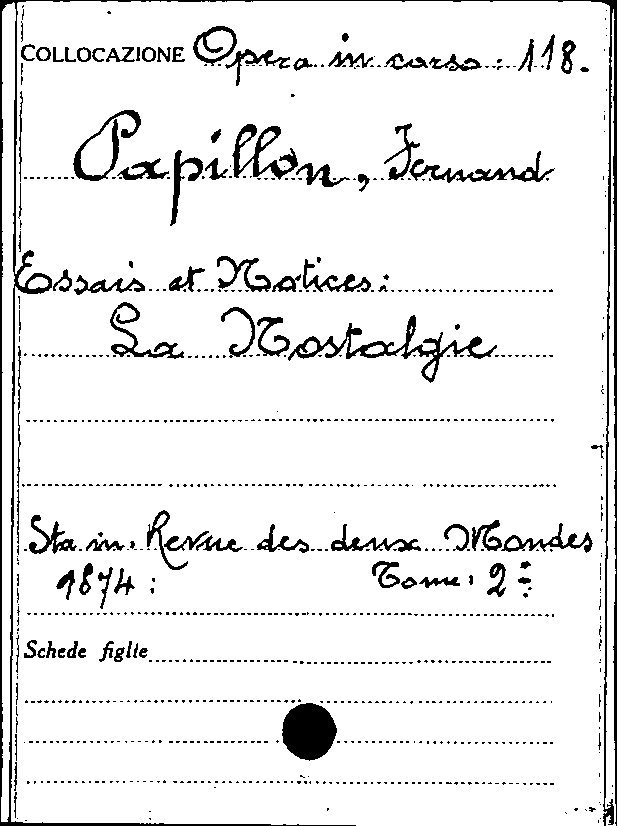 COLLOCAZIONE Opera in corso: 118.
Papillon, Fernand
Essais et Notices:
La Nostalgie
Sta in: Revue des deux Mondes
1874: Tome: 2º
Schede figlie